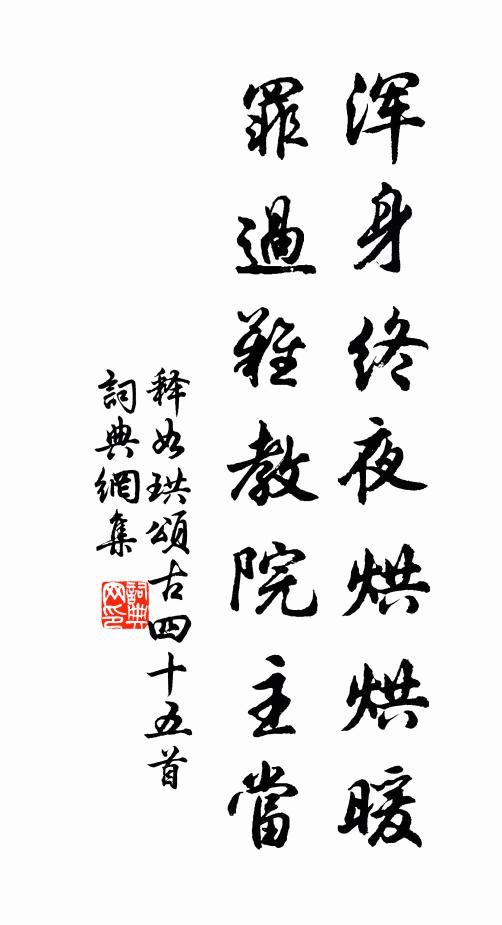 渾身終夜烘烘暖
罪過難教院主當
释如珙頌古四十五首
詞典網集
詞典网印